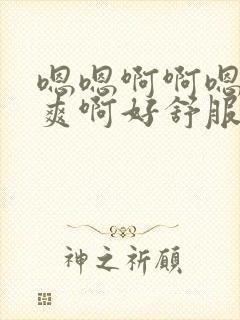 嗯嗯啊啊嗯
爽啊好舒服
神之祈愿